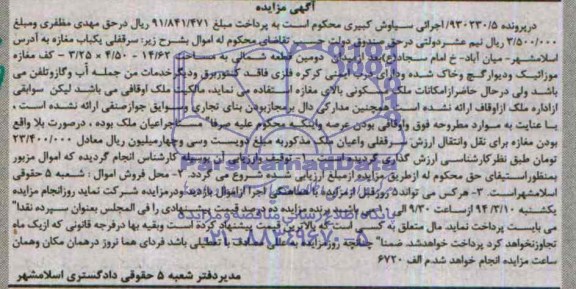 آگهی مزایده
درپرونده ۹۳۰۳۳۰۵ اجرائی سیاوش کبیری محکوم است به پرداخت مبلغ ۹۱/۸۴۱/۴۷۱ ریال درحق مهدی مظفری ومبلغ
۳/۵۰۰/۰۰۰ ریال نیم عشردولتی درحق صندوق دولت حسب تقاضای محکوم له اموال بشرح زیر: سرقفلی یکباب مغازه به آدرس
اسلامشهر- میان آباد- خ امام سجاد(ع) دومین قطعه شمالی به مساحت ۱۴/۶۲ - ۴/۵۰ - ۳/۲۵ - کف مغازه
موزائیک ودیوارگچ وخاک شده ودارای ایمنی کرکره فلزی فاقد کنتوربرق ودیگرخدمات من جمله آب وگازوتلفن می
باشد ولی درحال حاضرازامکانات ملک مسکونی بالای مغازه استفاده می نماید، مالکیت ملک اوقافی می باشد لیکن سوابقی
ازاداره ملک ازاوقاف ارائه نشده است همچنین مدارکی دال برمجازبودن بنای تجاری وسوابق جوازصنفی ارائه نشده است ،
با عنایت به موارد مطروحه فوق واوقافی بودن عرصه واینکه محکوم علیه صرفا" مستاجراعیان ملک بوده ، درصورت بلا واقع
بودن مغازه برای نقل وانتقال ارزش سرقفلی واعیان ملک مذکوربه مبلغ دویست وسی وچهارمیلیون ریال معادل ۲۳/۴۰۰/۰۰۰
تومان طبق نظرکارشناسی ارزش گذاری گردیده است توقیف وارزیابی آن بوسیله کارشناس انجام گردیده که اموال مزبور
بمنظوراستیفای حق محکوم له ازطریق مزایده ازمبلغ ارزیابی شده شروع می گردد. ۲- محل فروش اموال : شعبه ۵ حقوقی
اسلامشهراست. ۳- هرکس می تواند ۵ روزقبل ازمزایده با هماهنگی اجرا ازاموال بازدید ودرمزایده شرکت نماید روزانجام مزایده
یکشنبه ۹۴/۳/۱۰ ازساعت ۹/۳۰ الی می باشد برنده مزایده ده درصد قیمت پیشنهادی را فی المجلس بعنوان سپرده نقدا"
می بایست پرداخت نماید. مال متعلق به کسی است که بالاترین قیمت پیشنهاد کرده است وبقیه بها درفرجه قانونی که ازیک ماه
تجاوزنخواهد کرد پرداخت خواهدشد. ضمنا" چنانچه روزمزایده به مصادف با تعطیلی باشد فردای هما نروز درهمان مکان وهمان
ساعت مزایده انجام خواهد شد.م الف ۶۷۲۰
مدیردفتر شعبه ۵ حقوقی دادگستری اسلامشهر
پایگاه اطلاع رسانی مناقصه و مزایده